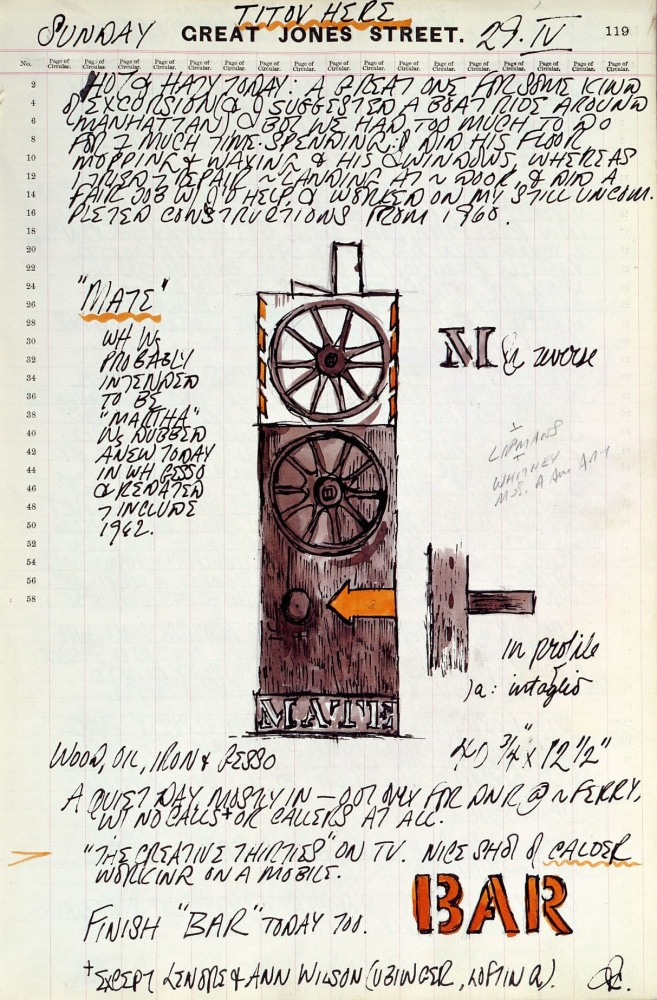 TITOV HERE
SUNDAY GREAT JONES STREET. 29. IV 119
No. Page of Circular. Page of Circular. Page of Circular. Page of Circular. Page of Circular. Page of Circular. Page of Circular. Page of Circular. Page of Circular. Page of Circular. Page of Circular. Page of Circular. Page of Circular. Page of Circular. Page of Circular. Page of Circular.
2
4
6
8
10
12
14
16
18
20
22
24
26
28
30
32
34
36
38
40
42
44
46
48
50
52
54
56
58
HOT & HAZY TODAY: A GREAT ONE FOR SOME KIND
OF EXCURSION (& I SUGGESTED A BOAT RIDE AROUND
MANHATTAN) BUT WE HAD TOO MUCH TO DO
FOR MUCH TIME-SPENDING: DID HIS FLOOR
MOPPING & WAXING & HIS WINDOWS, WHEREAS
I TRIED REPAIR LANDING AT DOOR, & DID A
FAIR JOB HELP, & WORKED ON MY STILL UNCOM-
PLETED CONSTRUCTIONS FROM 1960.
"MATE"
WH WS
PROBABLY
INTENDED
TO BE
"MARTHA"
WS DUBBED
ANEW TODAY
IN WH GESSO
& REDATED
INCLUDE
1962.
M & reverse
LIPMANS
WHITNEY
MUS. A Am ART
in profile
a: intaglio
MATE
WOOD, OIL, IRON & GESSO
40 3/4" x 12 1/2"
A QUIET DAY, MOSTLY IN — OUT ONLY FOR DNR @ FERRY,
W NO CALLS+ OR CALLERS AT ALL.
"THE CREATIVE THIRTIES" ON TV. NICE SHOT OF CALDER
WORKING ON A MOBILE.
FINISH "BAR" TODAY TOO. BAR
+EXCEPT LENORE & ANN WILSON